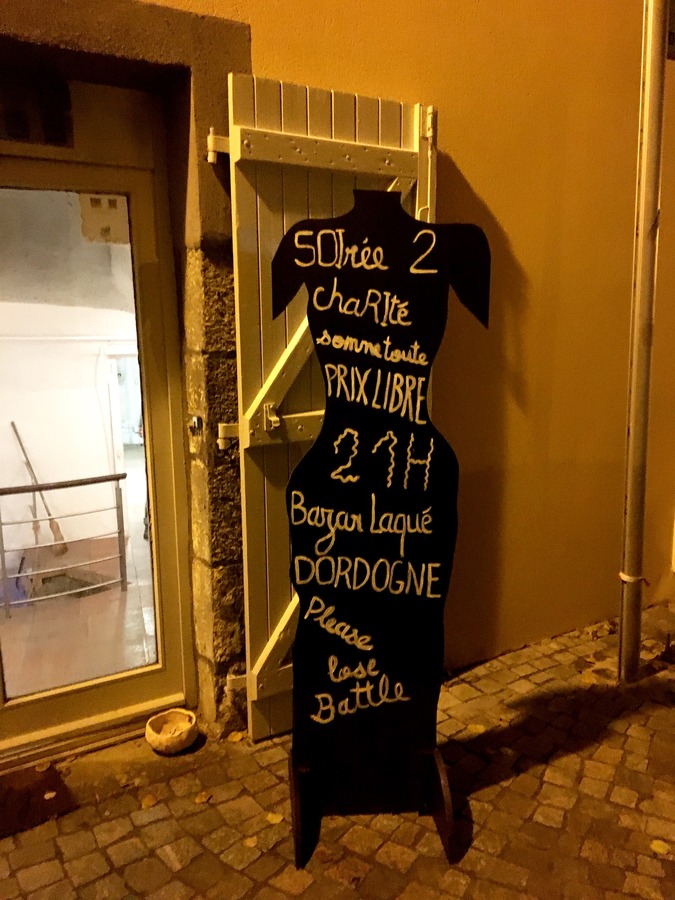 SOIrée 2
chaRIté
sommetoute
PRIX LIBRE
21H
Bazar Laqué
DORDOGNE
Please
lose
Battle